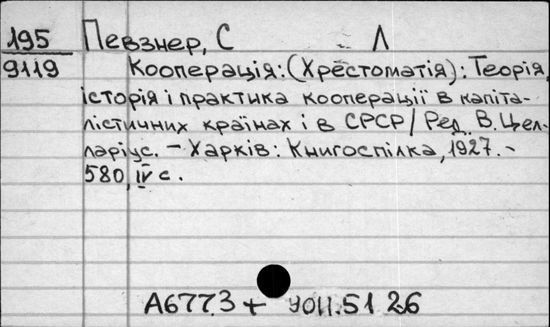 195 Певзнер, С Л
9119 Кооперація: (Хрестоматія): Теорія,
історія і практика кооперації в капіта-
лістичних країнах і в СРСР / Ред. В. Цел-
ларіус. – Харків: Книгоспілка, 1927. -
580, IV с.
А6773 + 9011.51 26